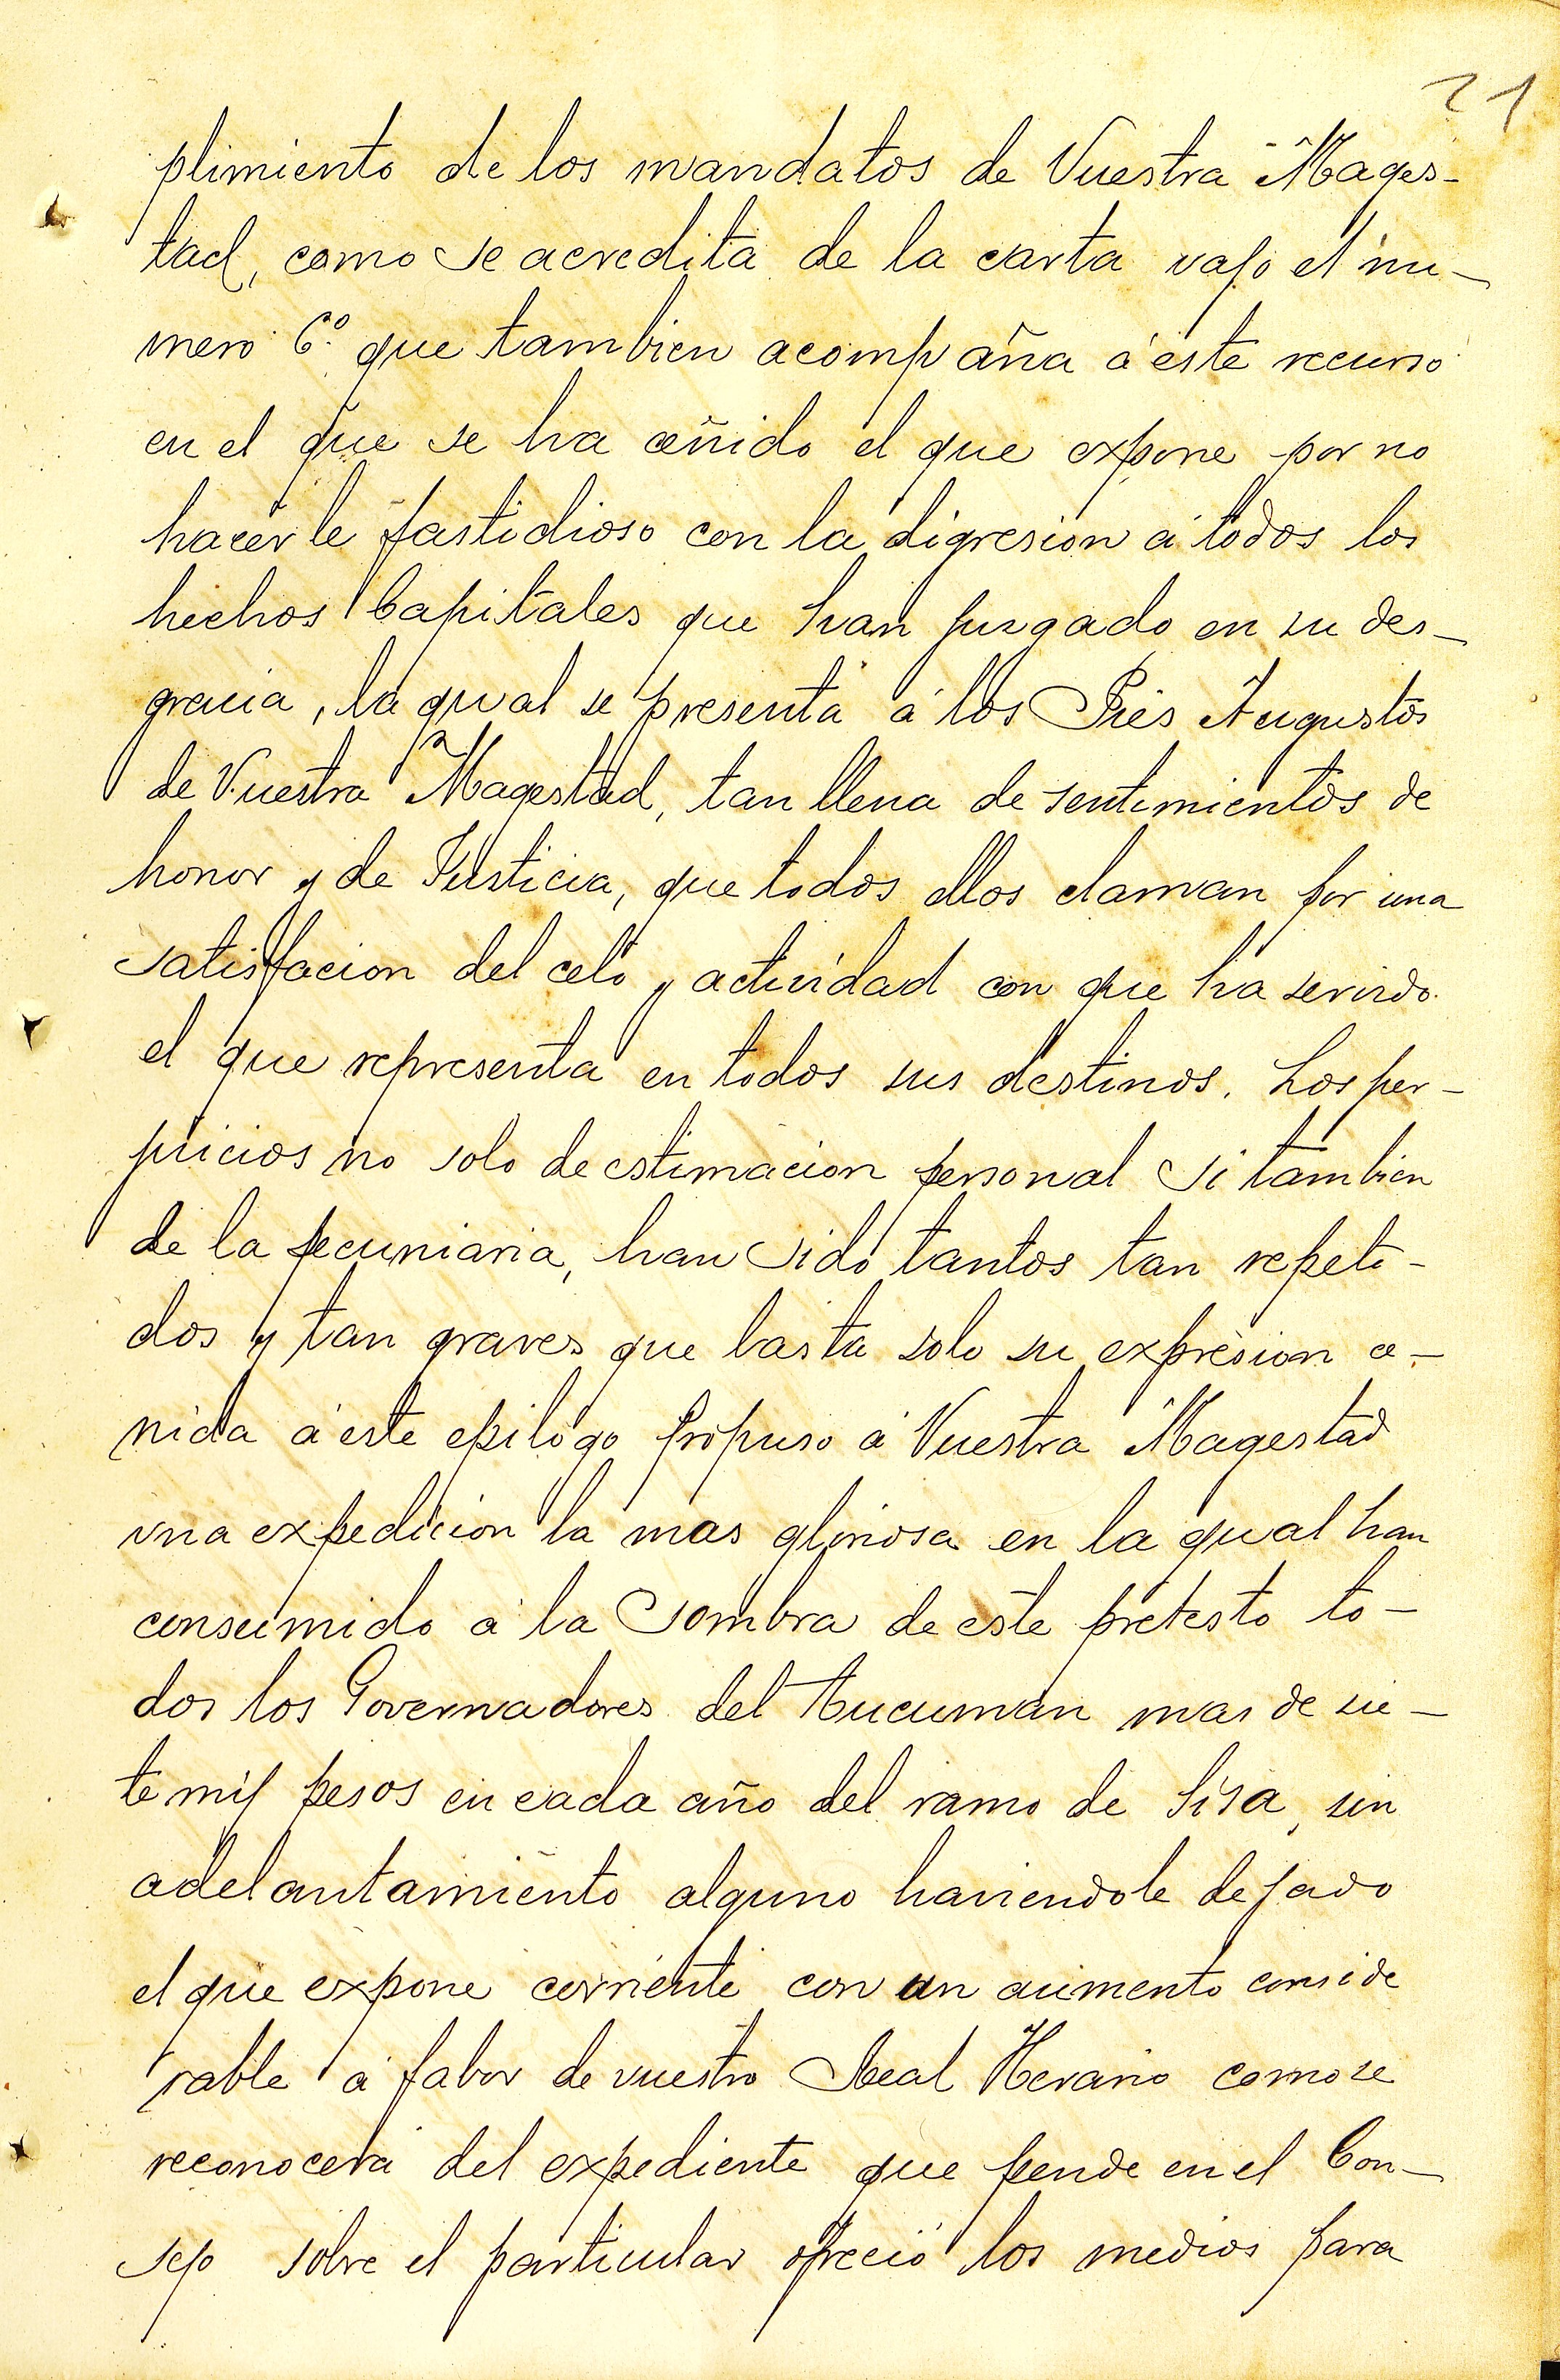 21
plimiento de los mandatos de Vuestra Mages-
tad, como se acredita de la carta vajo el nu-
mero 6º que tambien acompaña á este recurso
en el que se ha ceñido el que expone por no
hacerle fastidioso con la digresion á todos los
hechos Capitales que han juzgado en su des-
gracia, la qual se presenta á los Pies Augustos
de Vuestra Magestad, tan llena de sentimientos de
honor y de Justicia, que todos ellos claman por una
satisfacion del celo y actividad con que ha servido
el que representa en todos sus destinos. Los per-
juicios no solo de estimacion personal si tambien
de la pecuniaria, han sido tantos tan repeti-
dos y tan graves que basta solo su expresion ce-
nida á este epilogo Propuso á Vuestra Magestad
una expedicion la mas gloriosa en la qual han
consumido á la sombra de este pretesto to-
dos los Governadores del Tucuman mas de sie-
te mil pesos en cada año del ramo de Sisa, sin
adelantamiento alguno haviendole dejado
el que expone corriente con un aumento conside
rable á fabor de vuestro Real Herario como se
reconocerá del expediente que pende en el Con-
sejo sobre el particular ofreció los medios para